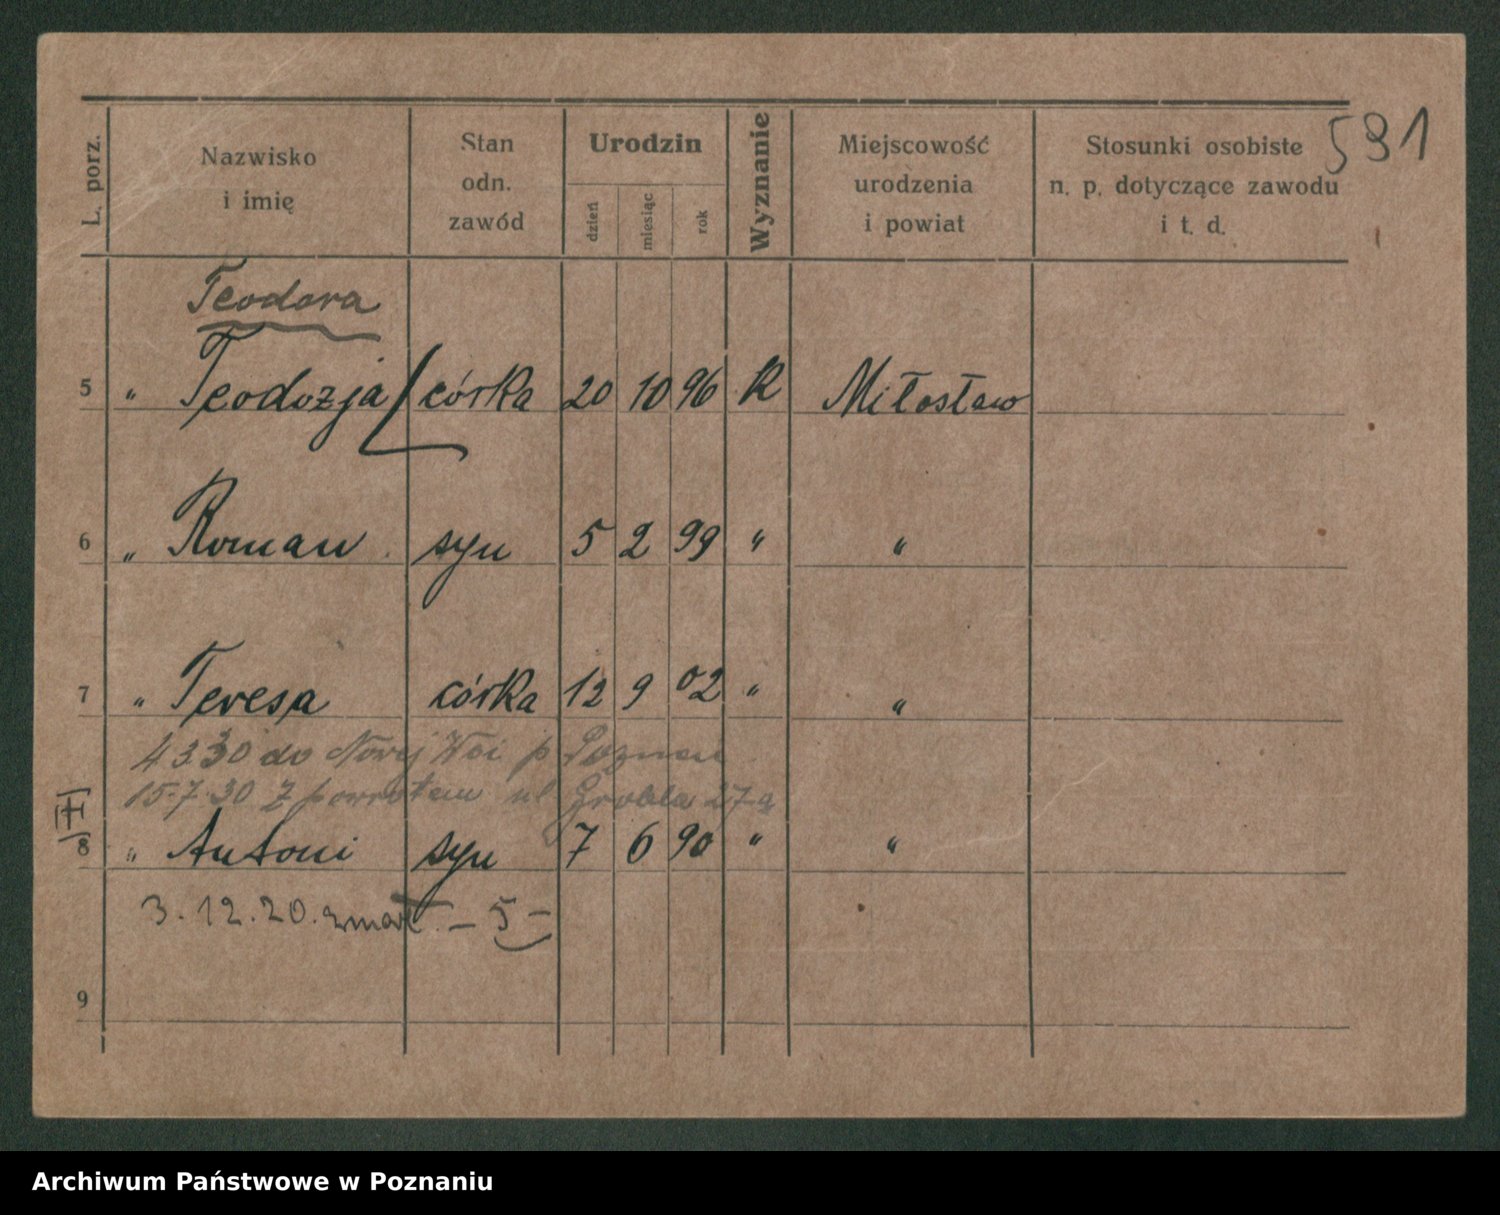 591
L. porz.
Nazwisko
i imię
Stan
odn.
zawód
Urodzin
dzień
miesiąc
rok
Wyznanie
Miejscowość
urodzenia
i powiat
Stosunki osobiste
n. p. dotyczące zawodu
i t. d.
Teodora
5 " Teodozja córka 20 10 96 R Miłosław
6 " Roman syn 5 2 99 " "
7 " Teresa córka 12 9 02 " "
4.3.30 do Nowej Wsi p. Poznan
15.7.30 Z powrotem ul Grobla 27a
8 " Antoni syn 7 6 90 " "
3.12.20. zmarł. – 5 –
9
Archiwum Państwowe w Poznaniu